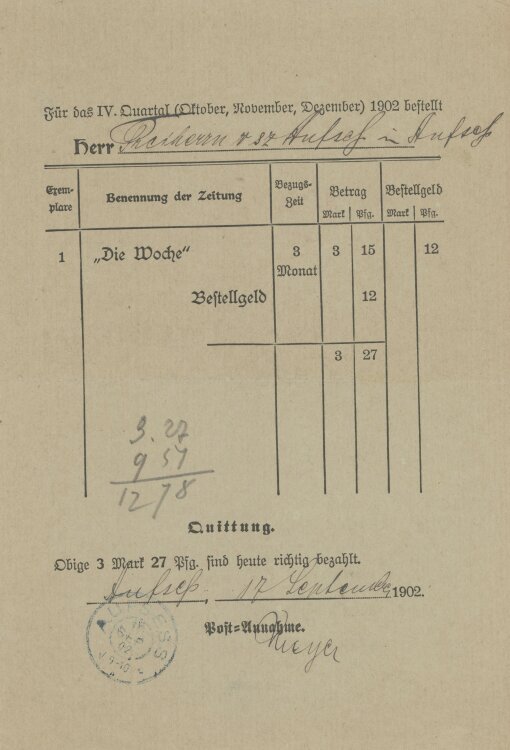 Für das IV. Quartal (Oktober, November, Dezember) 1902 bestellt
Herr Freiherrn v zu Aufseß in Aufseß
Exem-plare Benennung der Zeitung Bezugs-Zeit Betrag Bestellgeld
Mark Pfg. Mark Pfg.
1 „Die Woche“ 3 Monat 3 15 12
Bestellgeld 12
3 27
3. 27
9 51
12 78
Quittung.
Obige 3 Mark 27 Pfg. sind heute richtig bezahlt.
Aufseß, 17 September 1902.
Post=Annahme.